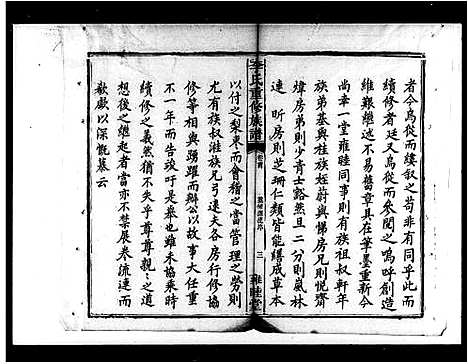 者今為從而縷叙之苟非有同乎此而
續修者廷又為從而參閱之嗚呼創造
維艱繼述不易舊章具在筆墨重新今
尚幸一堂雍睦同事則有族祖叔軒年
族弟基與桂族姪蔚與悌房兄悦齋
煒房弟則少青士谿然旦二分則嵐林
速 昕房則芝珊仁類皆能繕成草本
李氏重修族譜
卷首
三
雍睦堂
以付之梨棗而會稽之當管理之勞則
尤有族叔淮族兄弓遠夫各房行修協
修等相與踴躍而勷公事大任重
不一年而告竣吁是泰也雖未協乘時
續修之義然猶不失乎尊尊親親之道
想後之繼起者當亦不禁展卷流連而
欷歔以深慨慕云